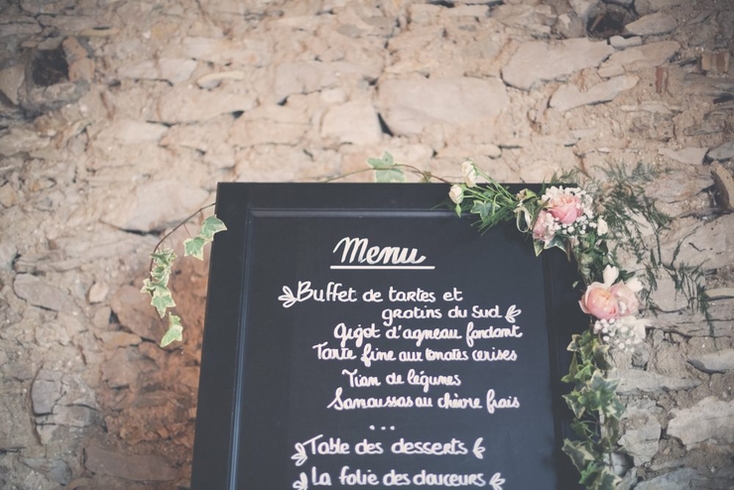 Menu
Buffet de tartes et
gratins du Sud
Gigot d'agneau fondant
Tarte fine aux tomates cerises
Tian de légunes
Samoussas au chèvre frais
...
Table des desserts
La folie des douceurs